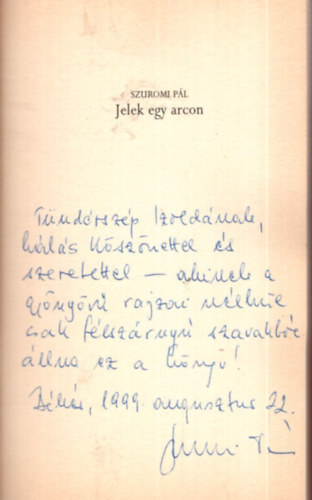 SZUROMI PÁL
Jelek egy arcon
Tündérszép Izoldának,
hálás köszönettel és
szeretettel – akinek a
gyönyörű rajzai nélkül
csak félszárnyú szavakból
állna ez a könyv!
Békés, 1999 augusztus 22.